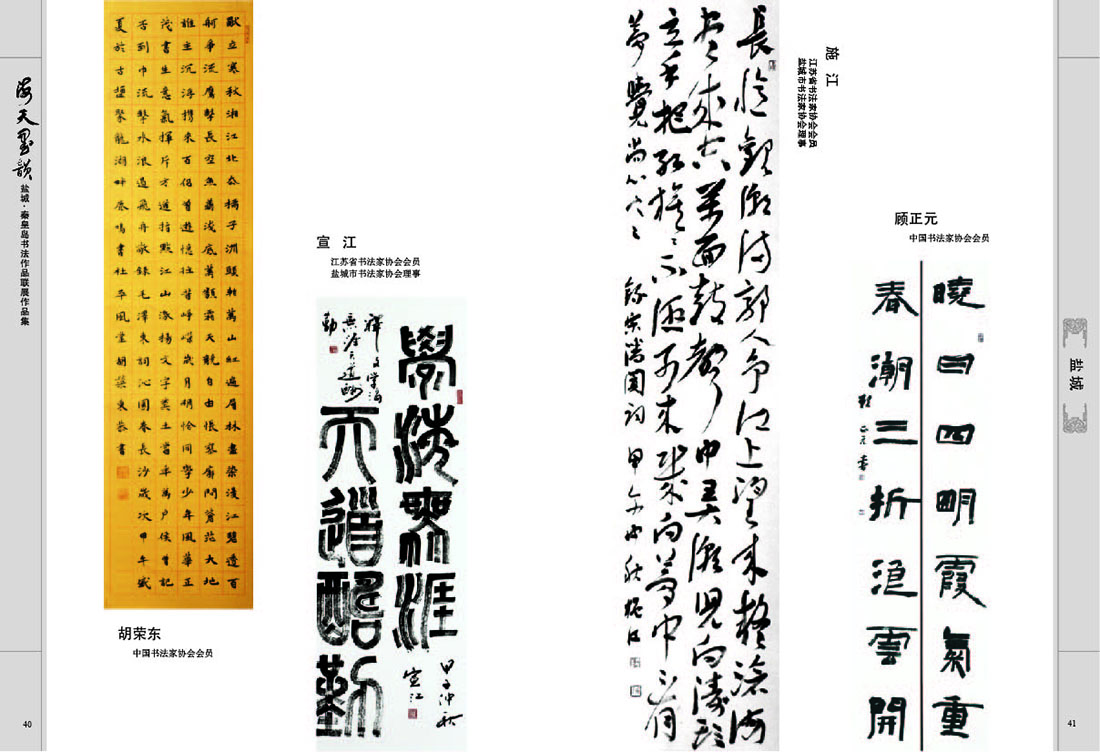 海天墨韵
盐城·秦皇岛书法作品联展作品集
40
獨立寒秋湘江北去橘子洲頭看萬山紅遍層林盡染漫江碧透百
舸爭流鷹擊長空魚翔淺底萬類霜天競自由悵寥廓問蒼茫大地
誰主沉浮攜來百侣曾遊憶往昔崢嶸歲月稠恰同學少年風華正
茂書生意氣揮斥方遒指點江山激揚文字糞土當年萬户侯曾記
否到中流擊水浪遏飛舟敬錄毛澤東詞沁園春長沙歲次甲午盛
夏於古鹽聚龍湖畔鹿鳴書社平風堂胡榮東恭書
胡荣东
中国书法家协会会员
宣 江
江苏省书法家协会会员
盐城市书法家协会理事
學海無涯
甲午仲秋
宣江
天道酬勤
釋文學海
無涯天道酬
勤
施 江
江苏省书法家协会会员
盐城市书法家协会理事
長憶觀潮滿郭人爭江上望來疑滄海
盡成空萬面鼓聲中弄潮兒向濤頭
立手把紅旗旗不濕別來幾向夢中看
夢覺尚心寒 錄宋潘閬詞 甲午中秋施江
顾正元
中国书法家协会会员
曉日四明霞氣重
春潮三折浪雲開
正元書
盐城
41